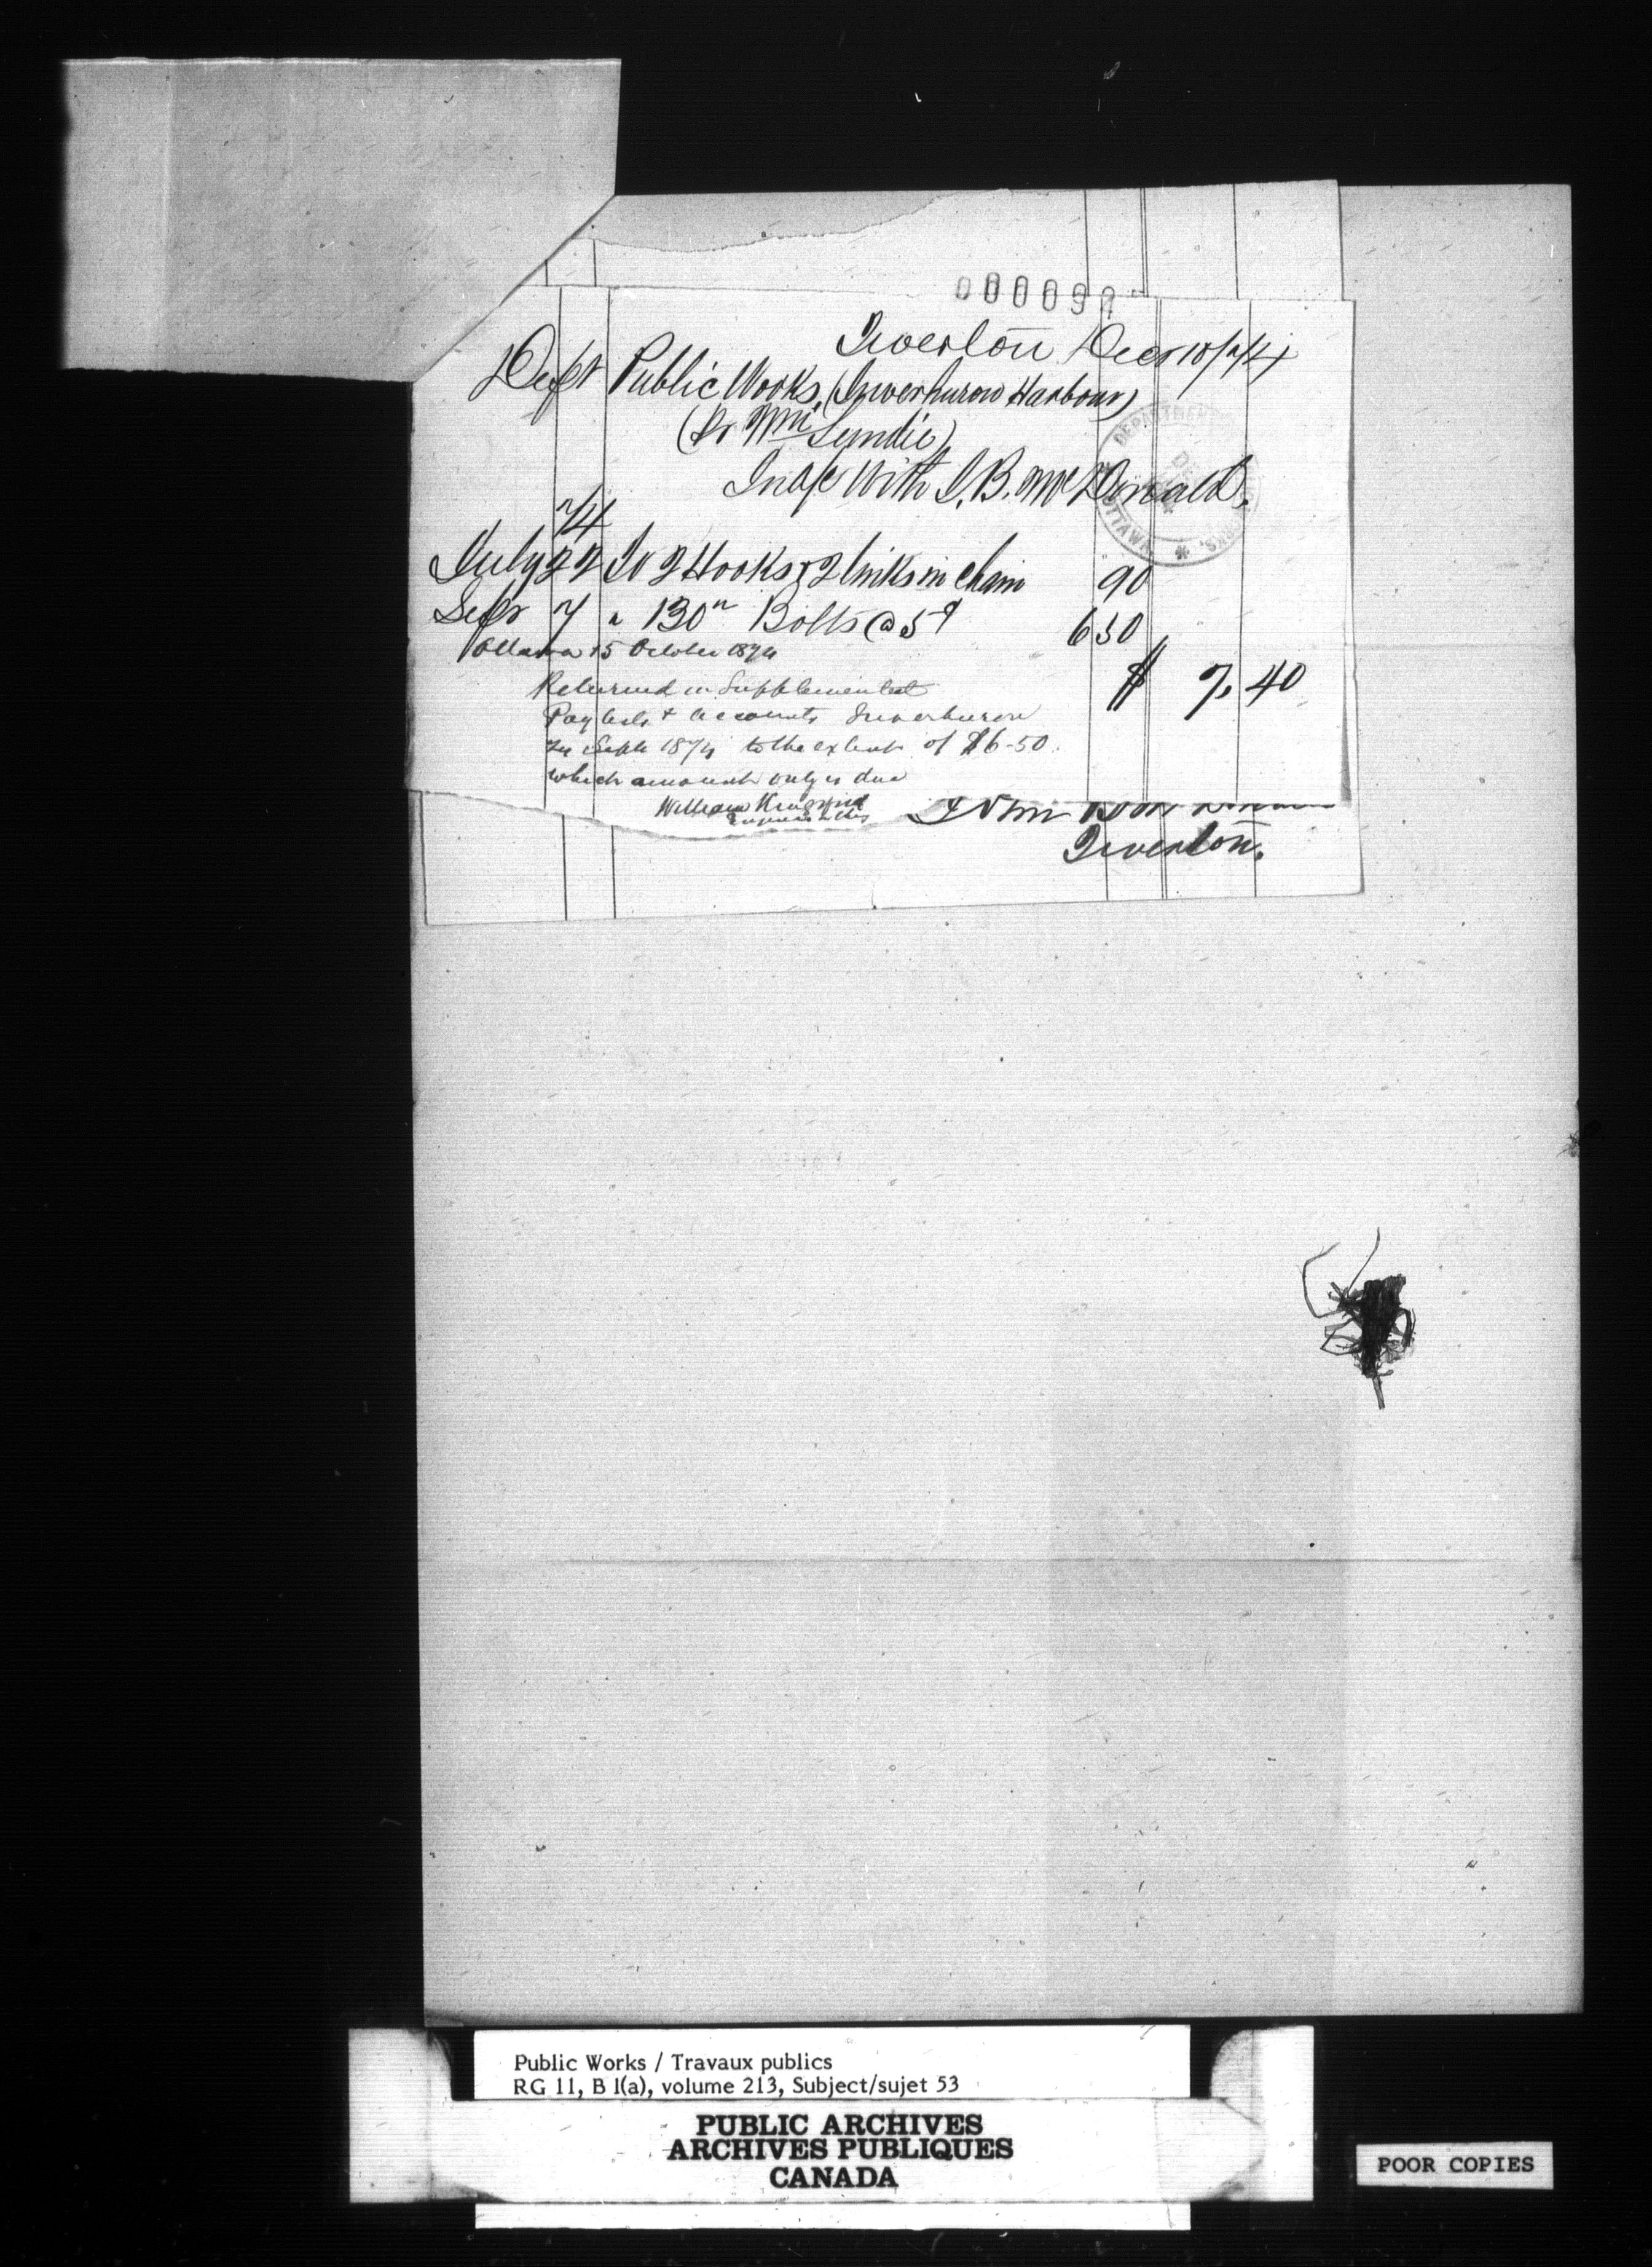 Tiverton Decr 10/74
Dept Public Works, (Inverhuron Harbour)
(Pr Wm Lundie)
In a/c With J. B. McDonald.
74
July 22 To 2 Hooks & 2 links in chain 90
Sepr 7 " 130 " Bolts @ 5 6 50
Ottawa 15 October 1874
$ 7, 40
Returned in Supplemental
Pay lists & accounts Inverhuron
Sept 1874 to the extent of $6-50.
which amount only is due
William Kingsford
Tiverton.
DEPARTMENT
OTTAWA
Public Works / Travaux publics
RG 11, B 1(a), volume 213, Subject/sujet 53
PUBLIC ARCHIVES
ARCHIVES PUBLIQUES
CANADA
POOR COPIES